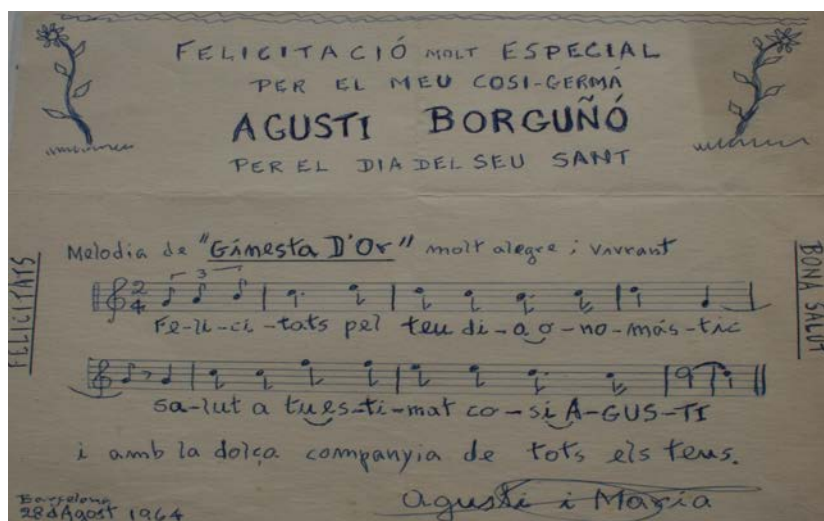 FELICITACIÓ MOLT ESPECIAL
PER EL MEU COSI-GERMÀ
AGUSTI BORGUÑÓ
PER EL DIA DEL SEU SANT
FELICITATS
BONA SALUT
Melodia de "Ginesta D'Or" molt alegre i vivrant
3
2
4
Fe-li-ci-tats pel teu di-a o-no-más-tic
sa-lut a tu es-ti-mat co-si A-GUS-TI
i amb la dolça companyia de tots els teus.
Barcelona
28 d'Agost 1964
Agusti i Maria